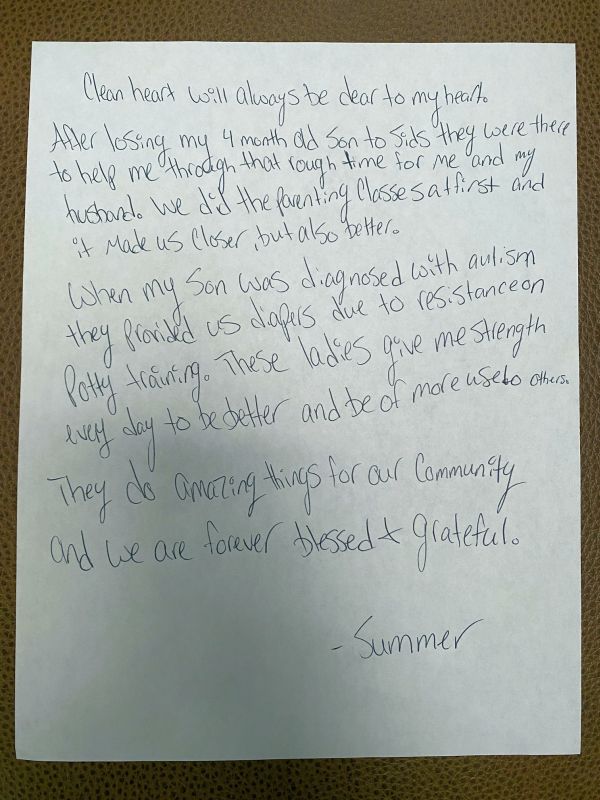 Clean heart will always be dear to my heart.
After losing my 4 month old Son to Sids they were there
to help me through that rough time for me and my
husband. We did the parenting Classes at first and
it made us Closer, but also better.
When my Son was diagnosed with autism
they provided us diapers due to resistance on
Potty training. These ladies give me strength
every day to be better and be of more use to others.
They do amazing things for our Community
and we are forever blessed & grateful.
- Summer